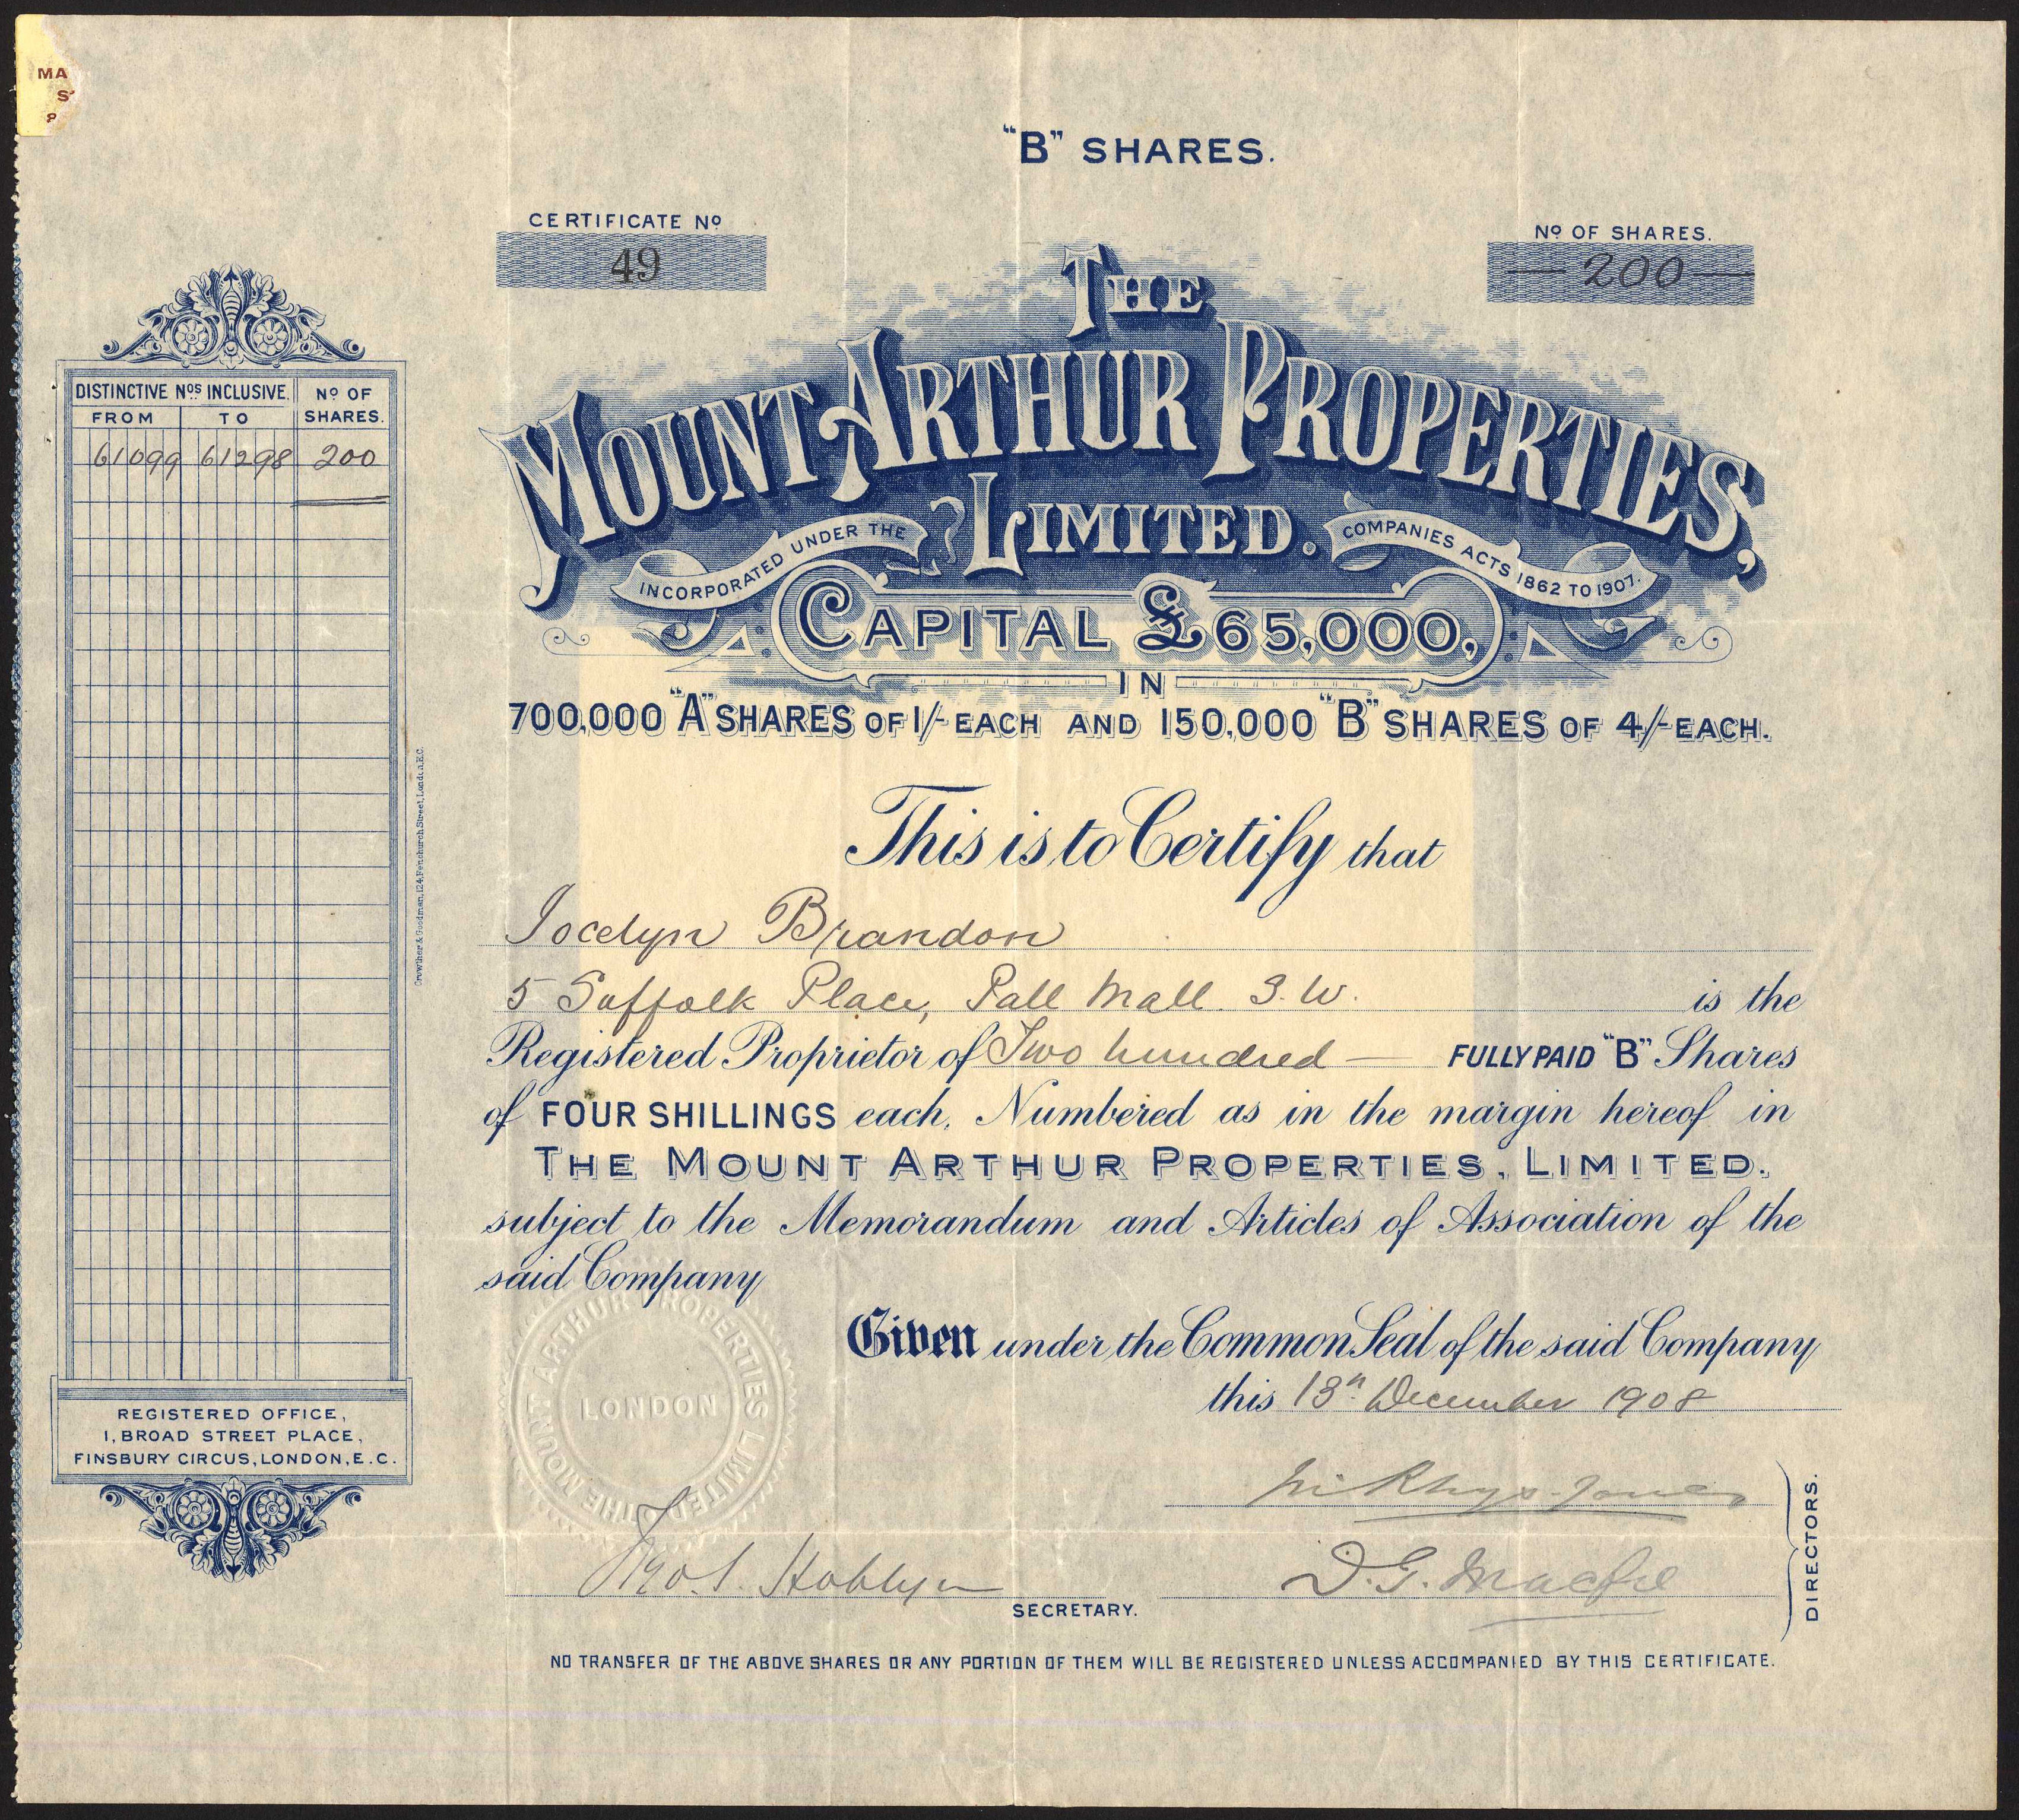 MA
S
"B" SHARES.
CERTIFICATE No
49
No OF SHARES.
200
THE
MOUNT ARTHUR PROPERTIES,
LIMITED.
INCORPORATED UNDER THE COMPANIES ACTS 1862 TO 1907.
CAPITAL £65,000,
IN
700,000 "A" SHARES OF 1/- EACH AND 150,000 "B" SHARES OF 4/- EACH.
DISTINCTIVE Nos INCLUSIVE. No OF SHARES.
FROM TO
61099 61298 200
Crowther & Goodman, 124, Fenchurch Street, London, E.C.
This is to Certify that
Jocelyn Brandon
5 Suffolk Place, Pall Mall. S.W. is the
Registered Proprietor of Two hundred — FULLY PAID "B" Shares
of FOUR SHILLINGS each, Numbered as in the margin hereof in
THE MOUNT ARTHUR PROPERTIES, LIMITED.
subject to the Memorandum and Articles of Association of the
said Company
Given under the Common Seal of the said Company
this 18th December 1908
THE MOUNT ARTHUR PROPERTIES LIMITED
LONDON
REGISTERED OFFICE,
1, BROAD STREET PLACE,
FINSBURY CIRCUS, LONDON, E.C.
Rhys-Jones
Hoblyn
D.G. Macfie
SECRETARY.
DIRECTORS.
NO TRANSFER OF THE ABOVE SHARES OR ANY PORTION OF THEM WILL BE REGISTERED UNLESS ACCOMPANIED BY THIS CERTIFICATE.